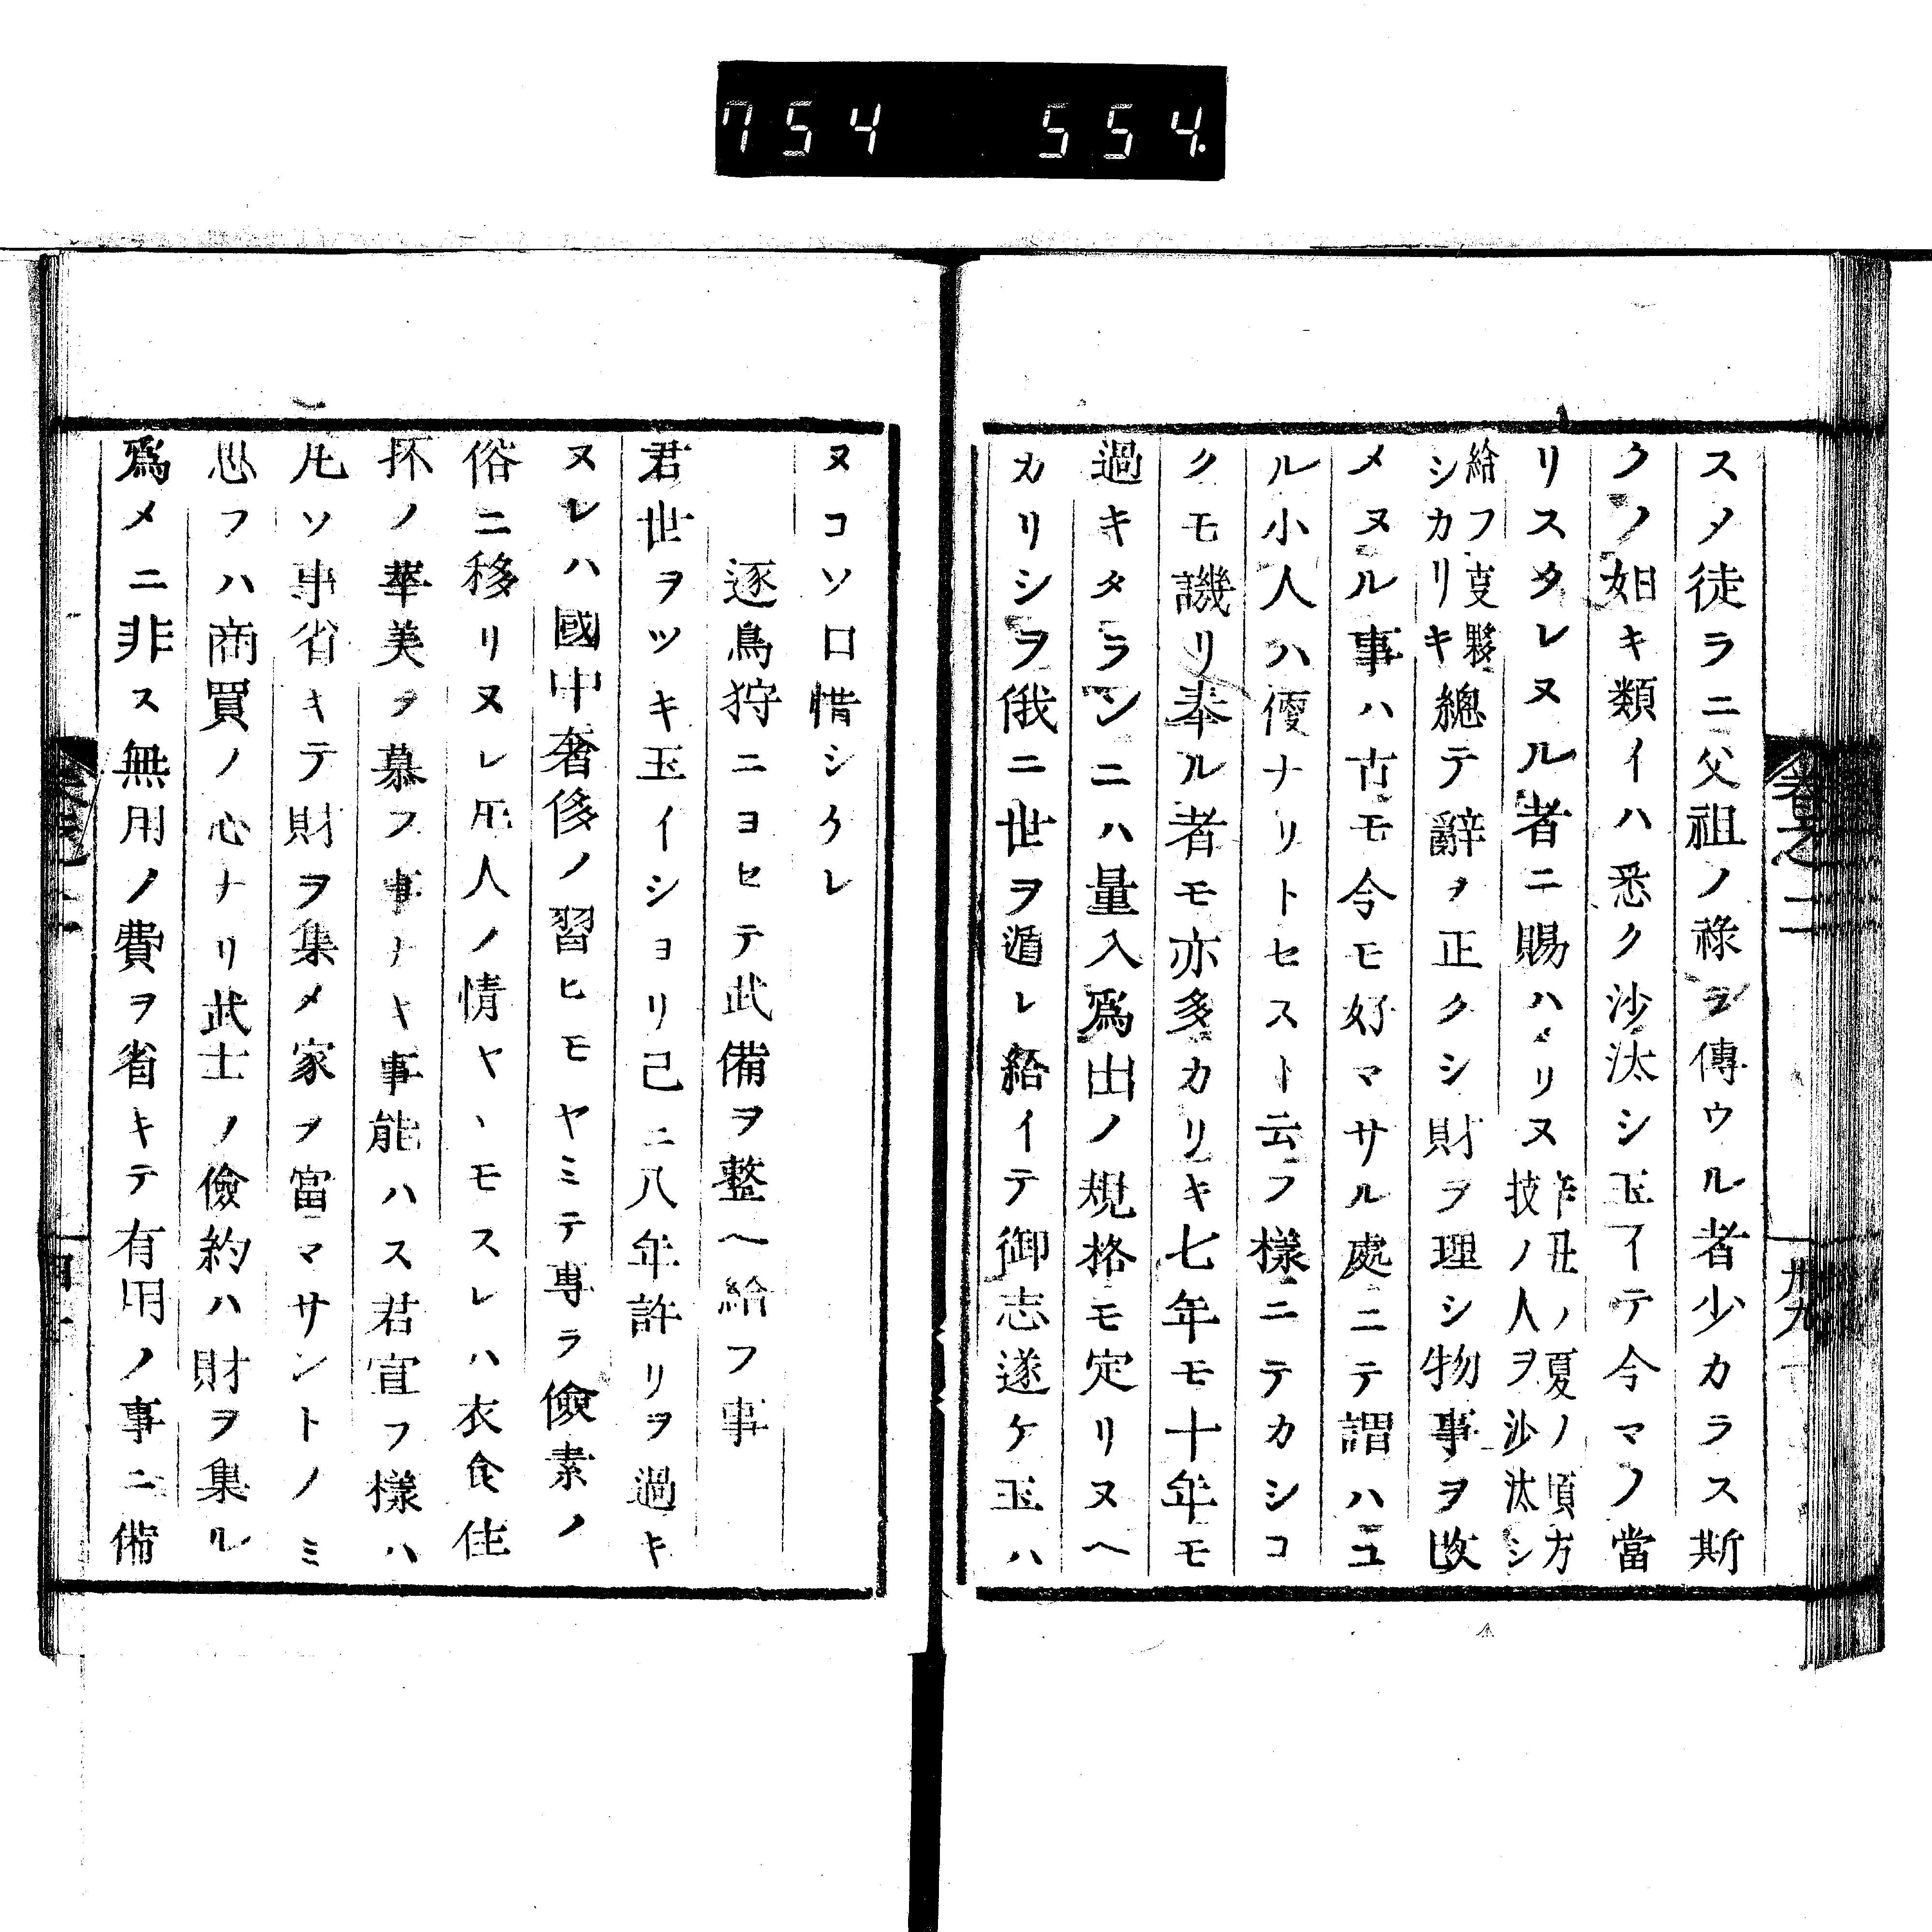 754 554.
スメ徒ラニ父祖ノ祿ヲ傳ウル者少カラス斯
クノ如キ類イハ悉ク沙汰シ玉イテ今マノ當
リスクレヌル者ニ賜ハヽリヌ 辛丑ノ夏ノ頃方
技ノ人ヲ沙汰シ
給フ叓夥
シカリキ 總テ辭ヲ正クシ財ヲ理シ物事ヲ收
メヌル事ハ古モ今モ好マサル處ニテ謂ハユ
ル小人ハ便ナリトセスト云フ樣ニテカシコ
クモ譏リ奉ル者モ亦多カリキ七年モ十年モ
過キタランニハ量入爲出ノ規格モ定リヌヘ
カリシヲ俄ニ世ヲ遁レ給イテ御志遂ケ玉ハ
卷之二
卅九
ヌコソ口惜シケレ
逐鳥狩ニヨセテ武備ヲ整ヘ給フ事
君世ヲツキ玉イシヨリ已ニ八年許リヲ過キ
ヌレハ國中奢侈ノ習ヒモヤミテ專ラ儉素ノ
俗ニ移リヌレ𪜈人ノ情ヤヽモスレハ衣食住
抔ノ華美ヲ慕フ事ナキ事能ハス君宣フ樣ハ
凡ソ事省キテ財ヲ集メ家ヲ富マサントノミ
思フハ商買ノ心ナリ武士ノ儉約ハ財ヲ集ル
爲メニ非ス無用ノ費ヲ省キテ有用ノ事ニ備